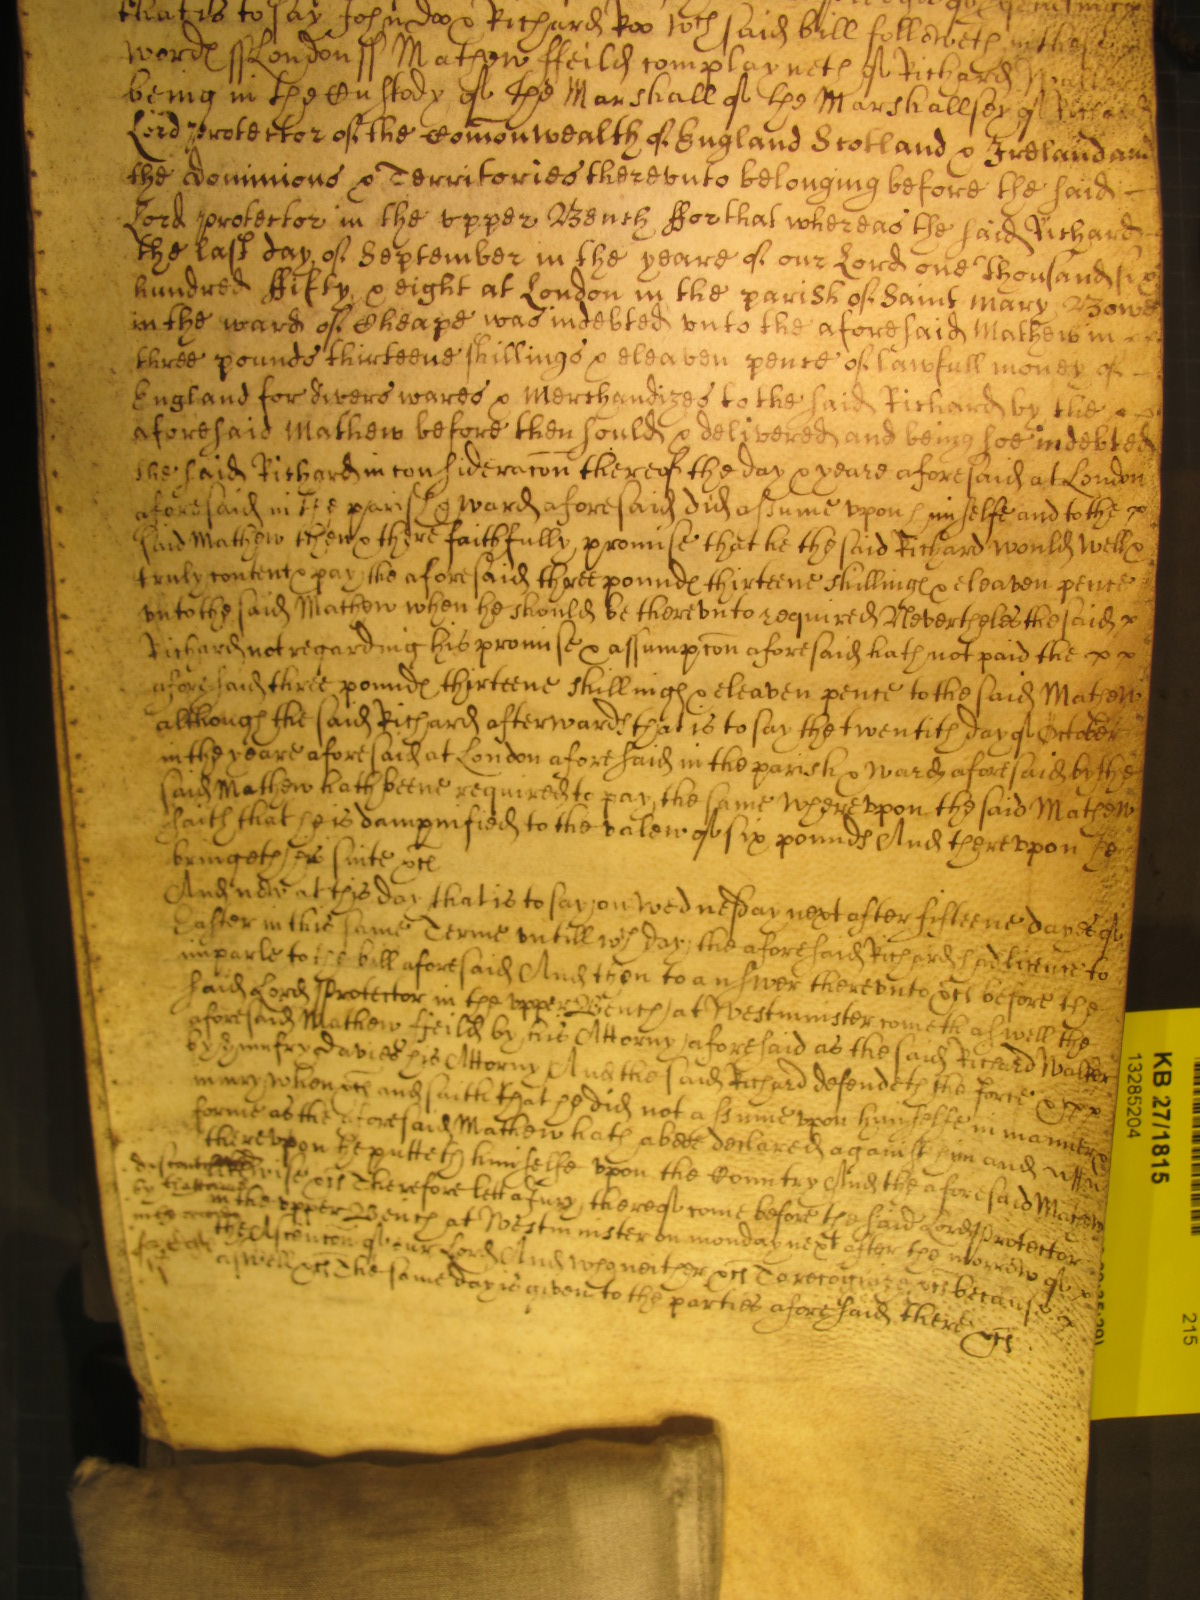 that is to say John doo & Richard Roo wch said bill followeth in these
words ss London ss Mathew ffeild complayneth of Richard Walter
being in the Custody of the Marshall of the Marshallsey of Richard
Lord Protector of the Comonwealth of England Scotland & Ireland and
the dominions & Territories therevnto belonging before the said
Lord Protector in the vpper Bench ffor that whereas the said Richard
the last day of September in the yeare of our Lord one thousand six
hundred ffifty & eight at London in the parish of Saint Mary Bowe
in the ward of Cheape was indebted vnto the aforesaid Mathew in
three pounds thirteene shillings & eleaven pence of lawfull money of
England for divers wares & Merchandizes to the said Richard by the
aforesaid Mathew before then sould & delivered and being soe indebted
the said Richard in consideracon thereof the day & yeare aforesaid at London
aforesaid in the parish & ward aforesaid did assume vpon himselfe and to the
said Mathew then & there faithfully promise that he the said Richard would well &
truly content & pay the aforesaid three pounds thirteene shillings & eleaven pence
vnto the said Mathew when he should be therevnto required Neverthelesse the said
Richard not regarding his promise & assumpcon aforesaid hath not paid the
aforesaid three pounds thirteene shillings & eleaven pence to the said Mathew
although the said Richard afterwards that is to say the twentith day of October
in the yeare aforesaid at London aforesaid in the parish & ward aforesaid by the
said Mathew hath beene required to pay the same Wherevpon the said Mathew
saith that he is dampnified to the valew of six pounds And therevpon he
bringeth his suite &c
And now at this day that is to say on Wednesday next after fifteene dayes of
Easter in this same Terme vntill wch day the aforesaid Richard had licence to
imparle to the bill aforesaid And then to answer therevnto &c before the
said Lord Protector in the vpper Bench at Westminster cometh aswell the
aforesaid Mathew ffeild by his Attorny aforesaid as the said Richard Walter
by Humfry Davies his Attorny And the said Richard defendeth the force &
iniury when &c and saith that he did not assume vpon himselfe in manner &
forme as the aforesaid Mathew hath above declared against him and
therevpon he putteth himselfe vpon the Country And the aforesaid Mathew
likewise &c Therefore lett a Jury thereof come before the said Lord Protector
in the vpper Bench at Westminster on monday next after the morrow of
the Ascencon of our Lord And who neither &c To recognize &c because
aswell &c The same day is given to the parties aforesaid there &c
KB 27/1815
13285204
215